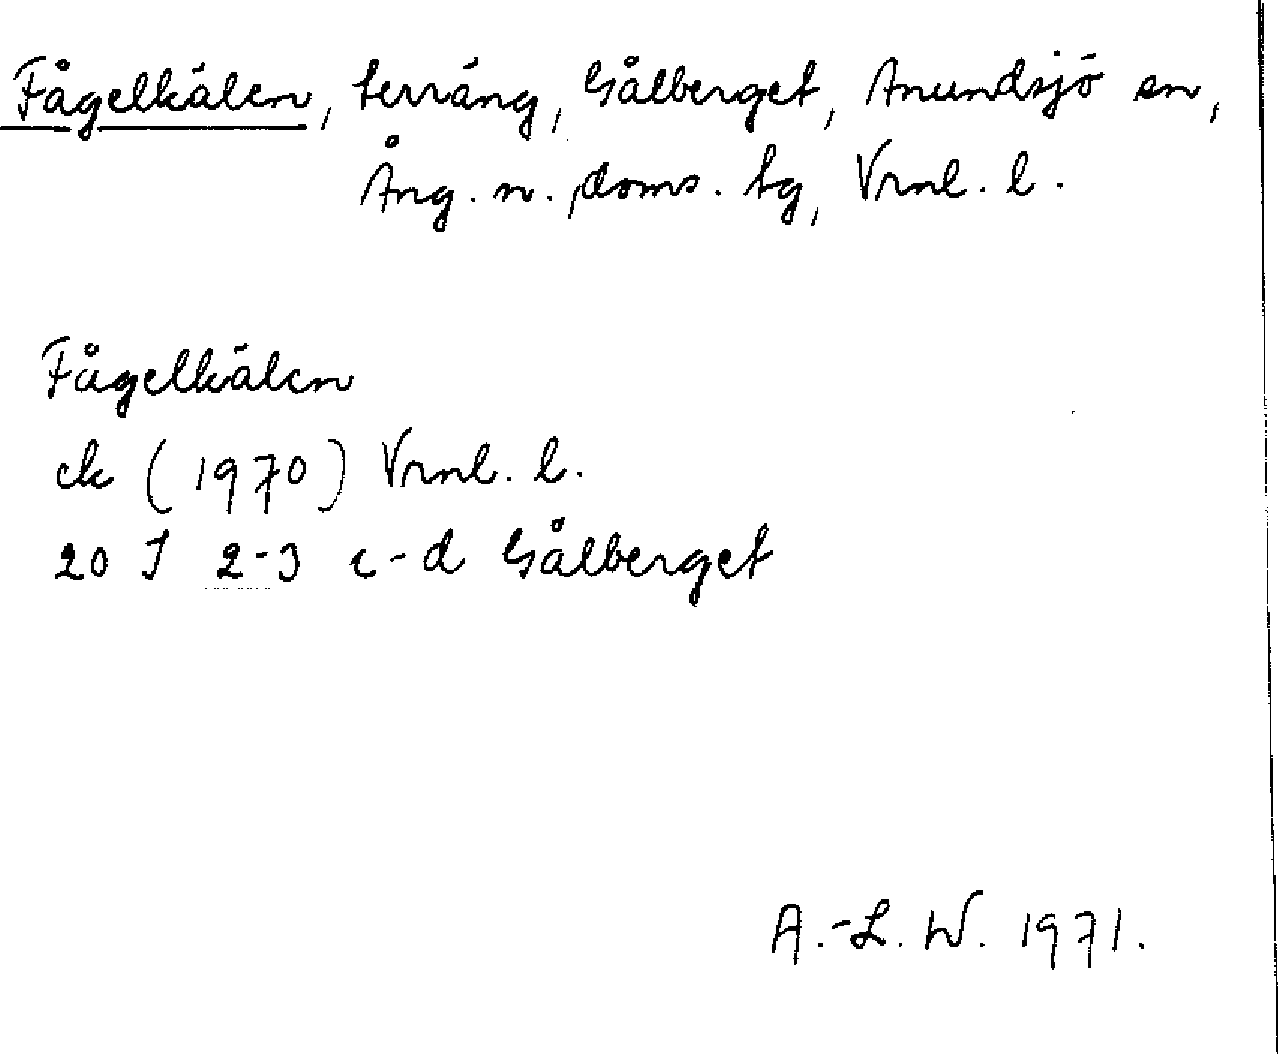 Fågelkälen, terräng, Gålberget, Anundsjö sn,
Ång. n. doms. tg, Vrnl. l.
Fågelkälen
ek (1970) Vrnl. l.
20 I 2-3 c-d Gålberget
A.-L. W. 1971.